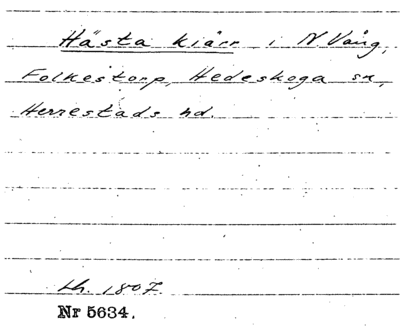 Hästa kiärr i N. Vång,
Folkestorp, Hedeskoga sn,
Herrestads hd.
Lh. 1807.
Nr 5634.